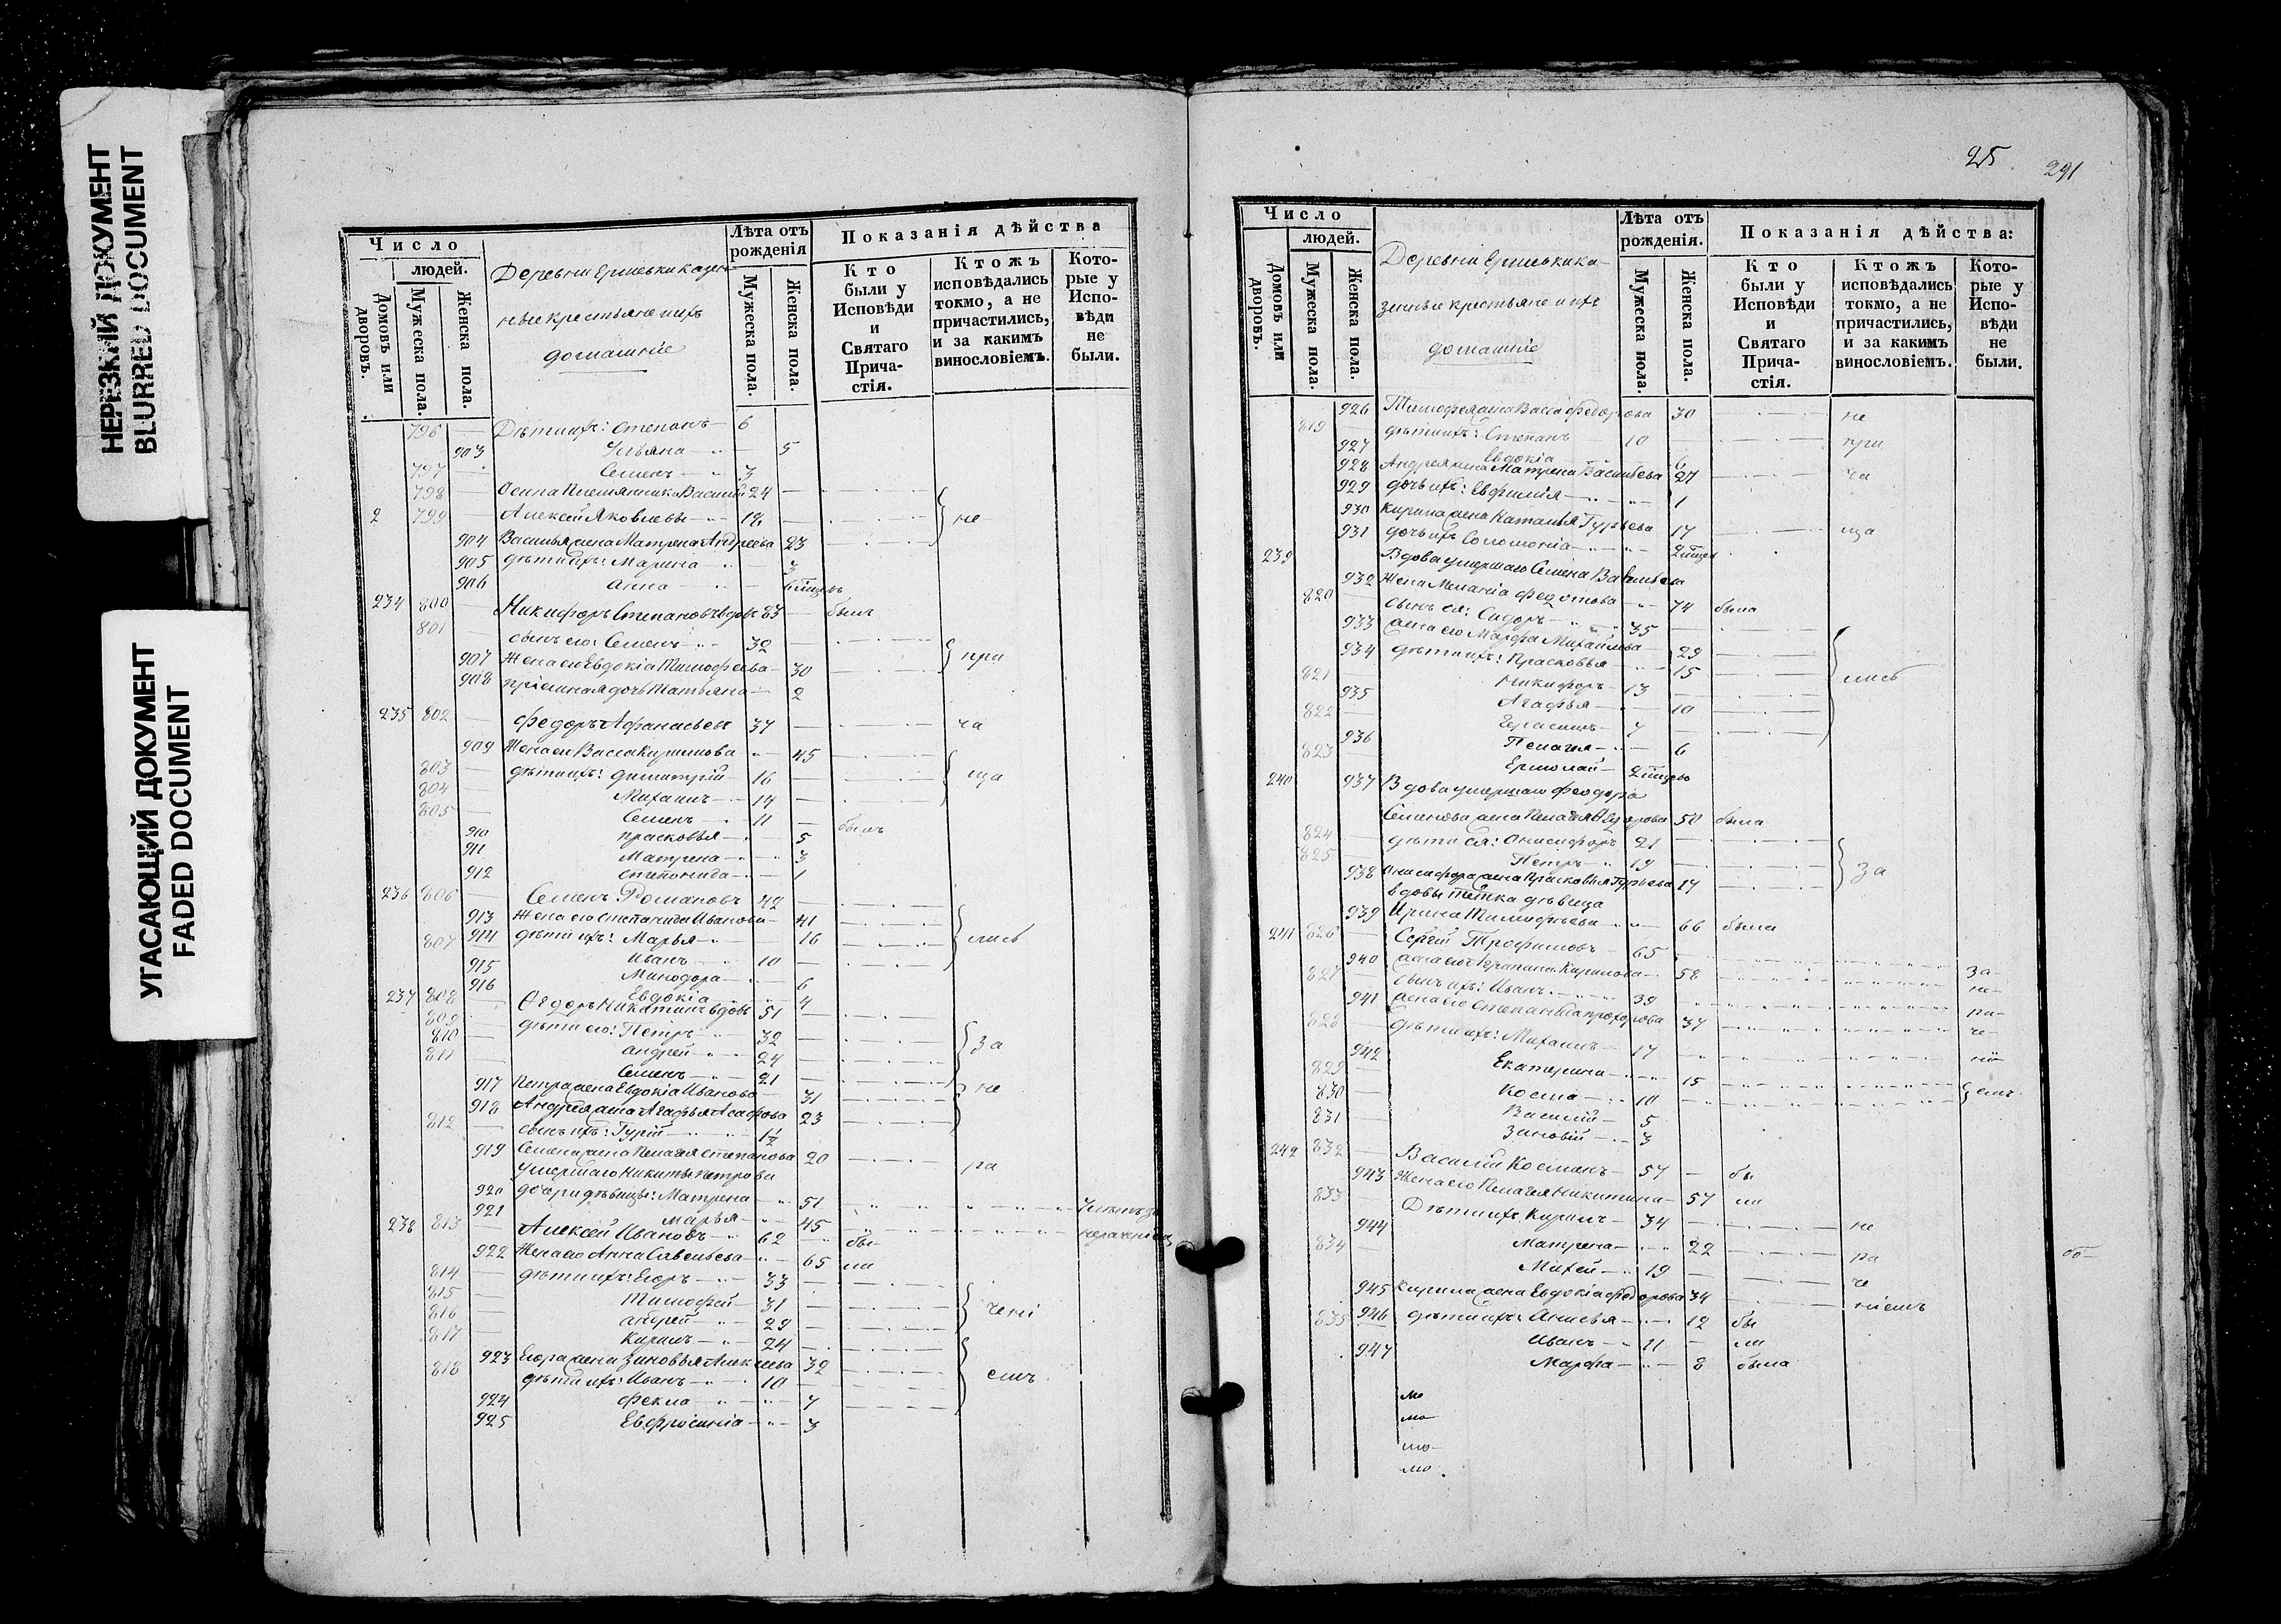 НЕРЕЗКИЙ ДОКУМЕНТ
BLURRED DOCUMENT
УГАСАЮЩИЙ ДОКУМЕНТ
FADED DOCUMENT
Число
людей.
Домовъ или дворовъ.
Мужеска пола.
Женска пола.
Деревни Ершевки казен
ные крестьяне и ихъ
домашніе
Лѣта отъ рожденія
Мужеска пола.
Женска пола.
Показанія дѣйства
Кто были у Исповѣди и Святаго Прича-стія.
Ктожъ исповѣдались токмо, а не причастились, и за какимъ винословіемъ.
Кото-рые у Испо-вѣди не были.
796 — Дѣти ихъ: Степанъ — 6
903 Ульяна — 5
797 — Семенъ — 3
798 — Осипа племянники Василій 24
2 799 — Алексей Яковлевы — 18 не
904 Василья жена Матрена Андреева 23
905 дѣти ихъ: Марина 3
906 Анна — 6
234 800 — Никифоръ Степановъ вдовъ 83 — былъ
801 — сынъ его: Семенъ — 32
907 Жена его Евдокіа Тимофеева — 30 при
908 пріемная дочь Татьяна — 2
235 802 — Федоръ Афанасьевъ 37 — ча
909 Жена его Васса Кирилова — 45
803 — дѣти ихъ: Димитрій — 16 ща
804 — Михаилъ — 14
805 — Семенъ — 11 — былъ
910 прасковья — 5
911 Матрена — 3
912 Степонида — 1
236 806 — Семенъ Романовъ 42
913 Жена его Степанида Иванова — 41
914 дѣти ихъ: Марья — 16 лись
807 Иванъ — 10
915 Минодора — 6
916 Евдокіа — 4
237 808 — Федоръ Никитинъ вдовъ 51
809 дѣти его: Петръ 32
810 — Андрей — 24 за
811 — Семенъ — 21
917 Петра жена Евдокіа Иванова — 31 не
918 Андрея жена Агафья Агафова 23
812 — сынъ ихъ: Гурій — 1½
919 Семена жена Пелагея Степанова 20 ра
умершаго Никиты Петрова
920 дочери дѣвицы: Матрена — 51
921 Марья — 45
238 813 — Алексей Ивановъ — 62 бы
922 Жена его Анна Савельева — 65 ли
814 — дѣти ихъ: Егоръ — 33
815 — Тимофей — 31 чені
816 — Андрей — 29
817 — Кирилъ — 24
923 Егора жена Зиновья Алексеева 32
818 дѣти ихъ: Иванъ — 10 емъ
924 Фекла — 7
925 Евфросиніа — 3
25
291
Число
людей.
Домовъ или дворовъ.
Мужеска пола.
Женска пола.
Деревни Ершевки ка-
зенные крестьяне и ихъ
домашніе
Лѣта отъ рожденія.
Мужеска пола.
Женска пола.
Показанія дѣйства:
Кто были у Исповѣди и Святаго Прича-стія.
Ктожъ исповѣдались токмо, а не причастились, и за какимъ винословіемъ.
Кото-рые у Испо-вѣди не были.
926 Тимофея жена Васса Федорова 30 не
819 — дѣти ихъ: Степанъ — 10 при
927 Евдокіа — 6
928 Андрея жена Матрена Васильева 27 ча
929 дочь ихъ: Евфиміа — 1
930 Кирила жена Наталья Гурьева 17 ща
931 дочь ихъ Соломоніа — 2
239 Вдова умершаго Семена Васильева
932 Жена Меланіа Федотова — 74 была
820 — сынъ ея: Сидоръ — 35
933 жена его Марфа Михайлова — 29
934 дѣти ихъ: Прасковья — 15 лись
821 Никифоръ — 13
935 Агафья — 10
822 Герасимъ — 7
936 Пелагея — 6
823 Ермолай — 2
240 937 Вдова умершаго Феодора
Семенова жена Пелагея Федорова 50 была
824 — дѣти ея: Онисифоръ 21
825 — Петръ — 19 за
938 Онисифора жена Прасковья Гурьева 17
вдовы тетка дѣвица
939 Ирина Тимофеева — 66 была
241 826 — Сергій Трофимовъ — 65
940 жена его Агрипина Кирилова — 58 за
827 — сынъ ихъ: Иванъ — 39 не-
941 жена его Степанида Прохорова 37 ра-
828 — дѣти ихъ: Михаилъ — 17 че-
942 Екатерина — 15 ні
829 — Косма — 10 емъ
830 — Василій — 5
831 — Зиновій — 3
242 832 — Василій Косминъ — 57 — бы
943 Жена его Пелагея Никитина — 57 ли
833 Дѣти ихъ Кирилъ — 34 не
944 Матрена — 22 ра
834 Михей — 19 че
945 Кирила жена Евдокіа Федорова 34 ніемъ
946 дѣти ихъ: Анисья — 12 бы
835 Иванъ — 11 — ли
947 Марфа — 8 была